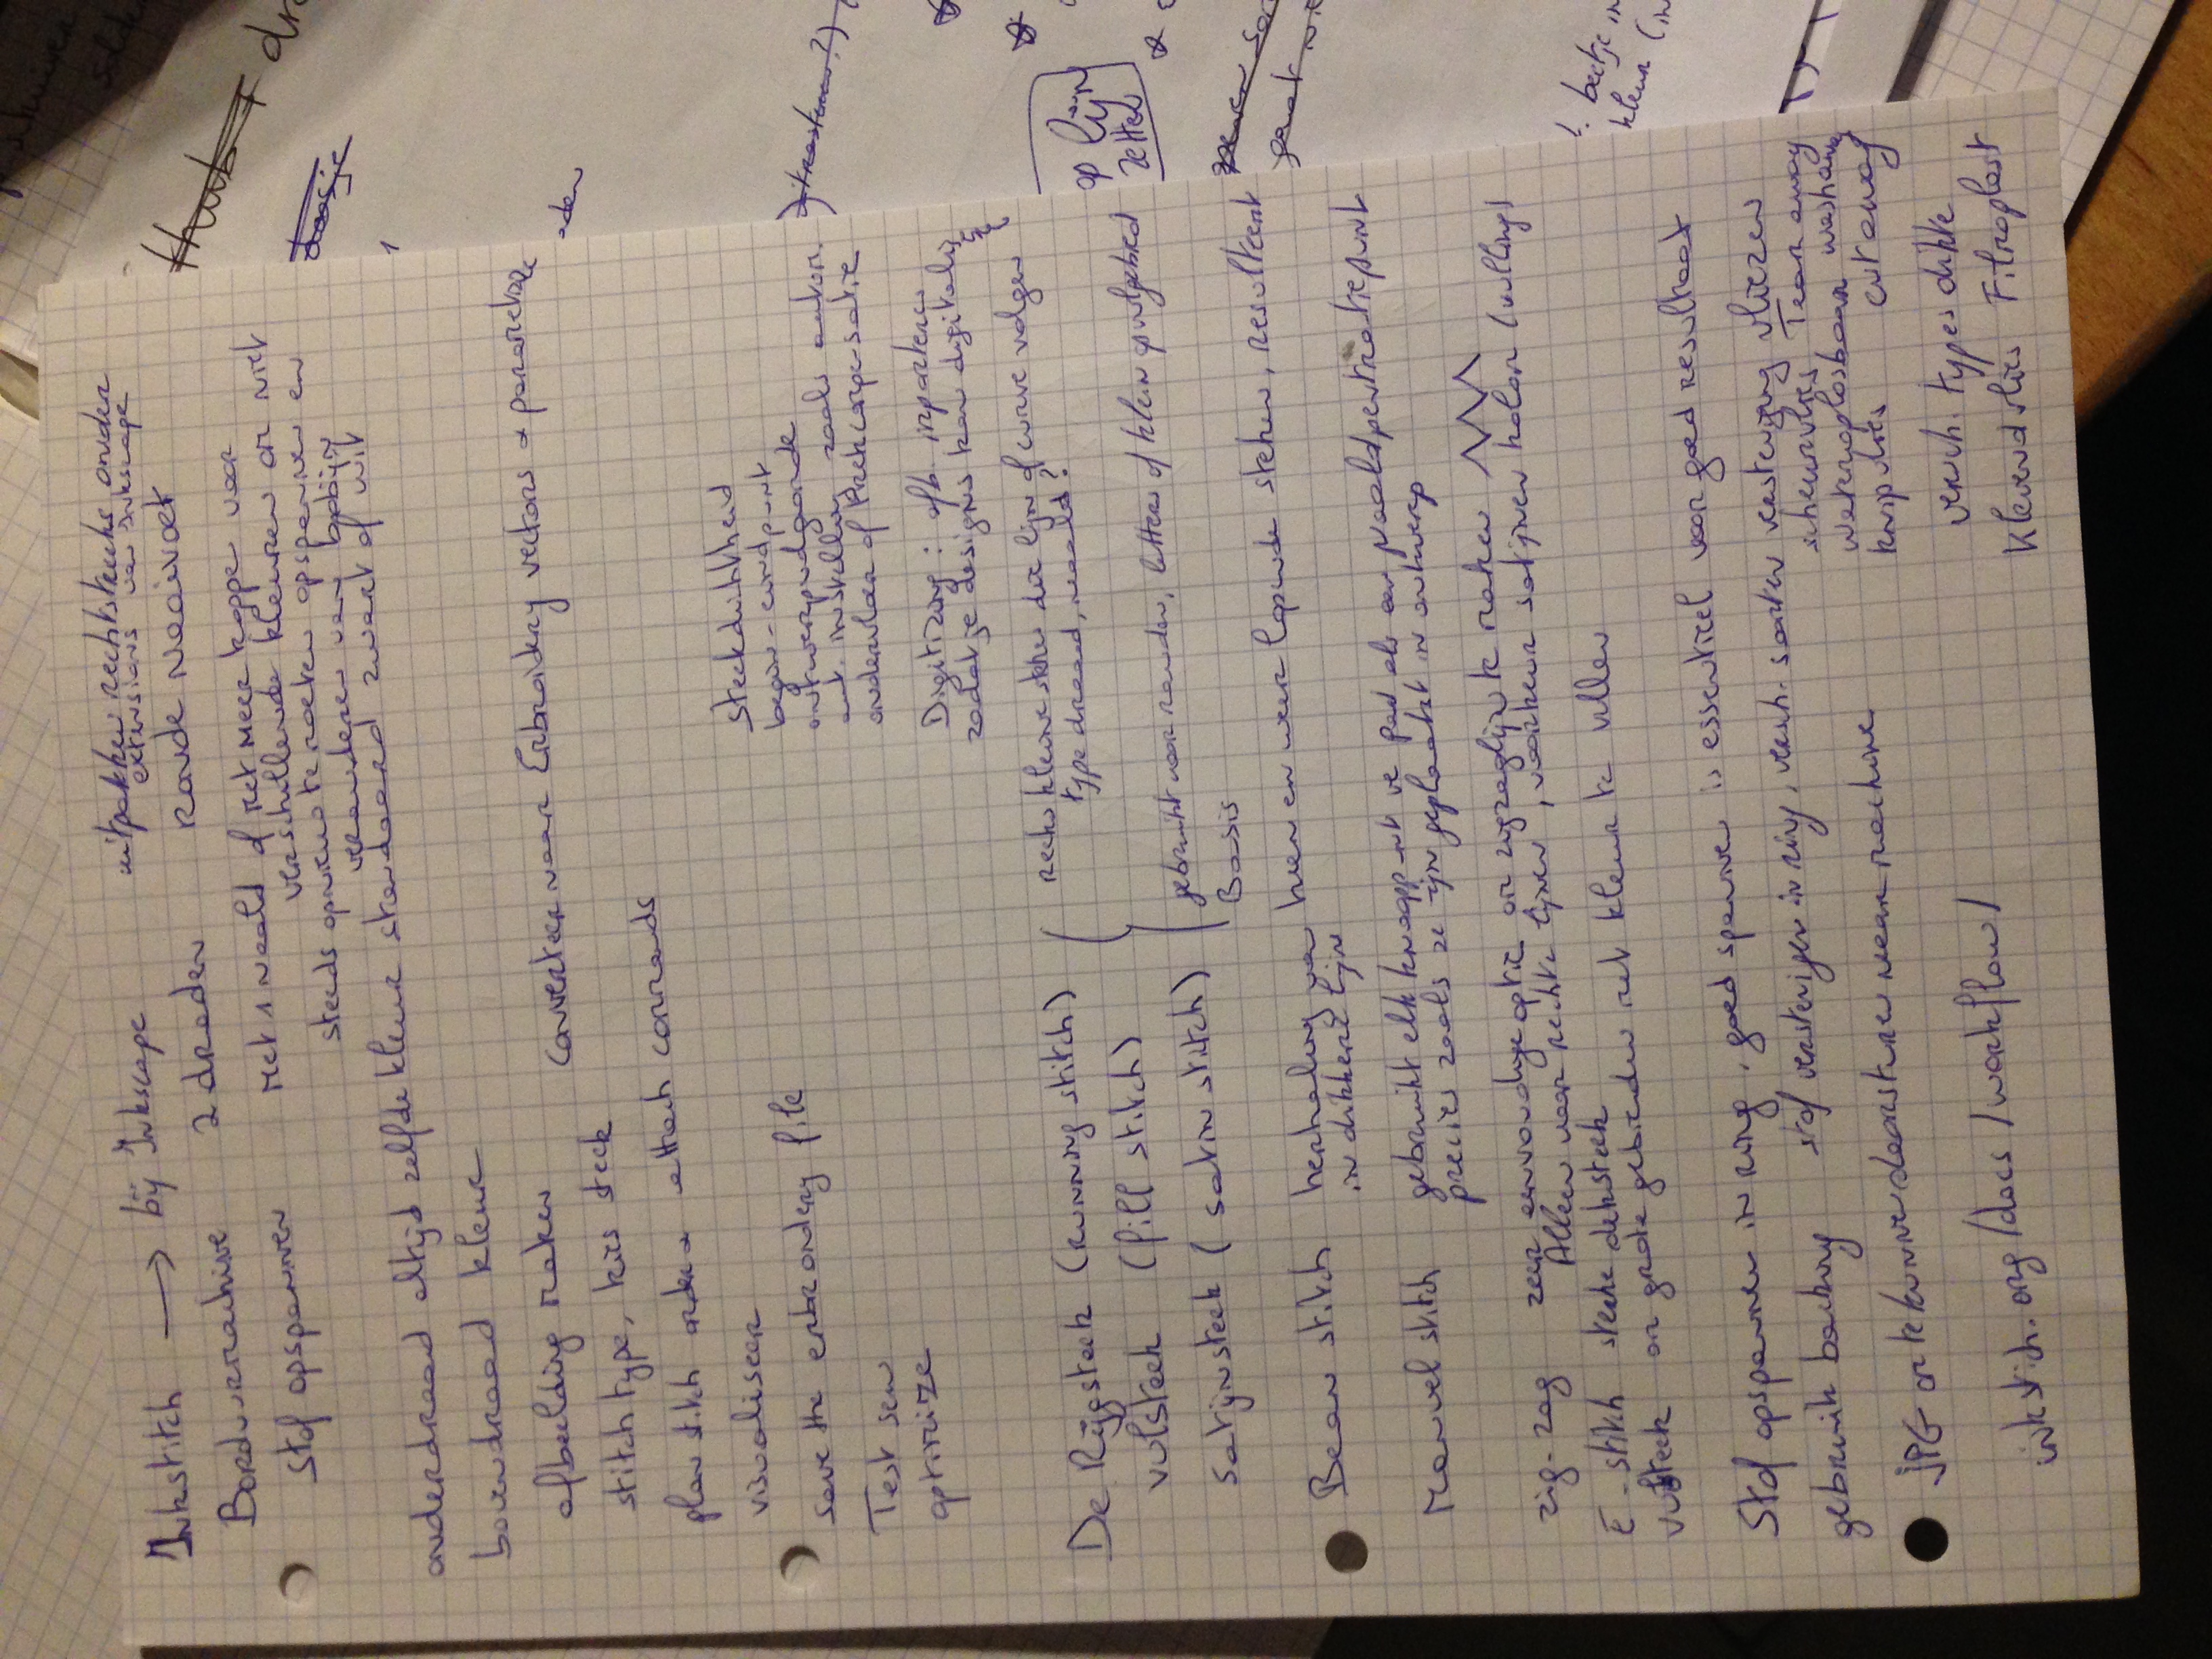 Inkstitch → bij Inkscape
uitpakken rechtstreeks onder
extensions van Inkscape
Borduurmachine 2 draden ronde Naaivoet
Stof opspannen met 1 naald of met meer koppen voor
verschillende kleuren om niet
steeds opnieuw te moeten opspannen en
veranderen van bobijn
onderdraad altijd zelfde kleur standaard zwart of wit
bovendraad kleur
afbeelding maken converteer naar Embroidery vectors & parametrize
stitch type, kies steek
plan stitch order & attach commands
visualiseer
save the embroidery file
Test sew
optimize
steekdichtheid
begin-eindpunt
ontwerpvolgorde
aut. instelling zoals autom.
ondervloer of trekcompensatie
Digitizing: afb. importeren
zodat je designs kan digitaliseren
De Rijgsteek (running stitch) reeks kleine steken die lijn of curve volgen
type draad, naald?
vulsteek (fill stitch)
satijnsteek (satin stitch) gebruikt voor randen, letters of klein opvulgebied
Basis
Bean stitch herhaling van heen en weer lopende steken, resulteert
in dikkere lijn
Manuel stitch gebruikt elk knooppunt ve pad als een Naaldpentratiepunt
precies zoals ze zijn geplaatst in ontwerp
zig-zag zeer eenvoudige optie om zigzaglijn te maken
Alleen voor rechte lijnen, voorkeur satijnen kolom (vulling)
E-stitch sterke deksteek
vulsteek om grote gebieden met kleur te vullen
Stof opspannen in ring, goed spannen is essentieel voor goed resultaat
gebruik backing stof verstevigen in ring, versch. soorten versteviging vliezen
scheurvlies Tear away
wateroplosbaar washaway
knipvlies cut away
JPG om te kunnen doorsturen naar machine
versch. types dikte
Klevend vlies Filmoplast
inkstich.org/docs/workflow/
Thub
dra
doosje
1
aden
op lijn
zetten
gaat nie
beetje in
kleur (in